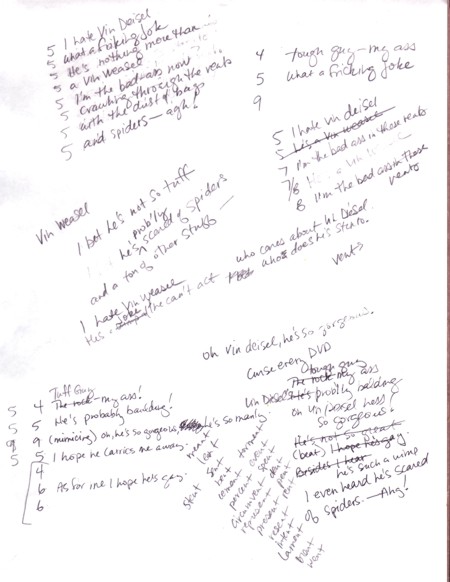 5 I hate Vin Deisel
5 what a fricking joke
5 He's nothing more than
5 a Vin Weasel
5 I'm the bad-ass now
5 crawling through the vents
5 with the dust & bugs
5 and spiders—agh!
4 Tough guy—my ass
5 what a fricking joke
9
5 I hate vin deisel
5 he's a vin weasel
7 I'm the bad ass in these vents
7/8
8 I'm the bad ass in these
vents
Vin Weasel
I bet he's not so tuff
prob'ly
he's scared of spiders
and a ton of other stuff—
I hate Vin Weasel
He's a joke, he can't act
who cares about Vin Diesel
who does he's starro.
vents
oh vin deisel, he's so gorgeous.
curse every DVD
Tuff Guy
5 4 The rock my ass!
5 5 He's probably balding!
9 9 (mimicing) oh, he's so gorgeous, he's so manly
5 5 I hope he carries me away.
4
6 As for me I hope he's gay.
6
tough guy
The rock my ass
Vin Diesel's He's prob'ly balding
oh Vin Diesel he's
so gorgeous!
He's not so great
(beat) I hope he's gay.
Besides I hear
he's such a wimp
I even heard he's scared
of spiders.—Ahg!
meant
cent
spent
bent
cement
percent
circumvent
represent
present
resent
intent
lament
torment
event
spent
dent
pent
rent
front
went